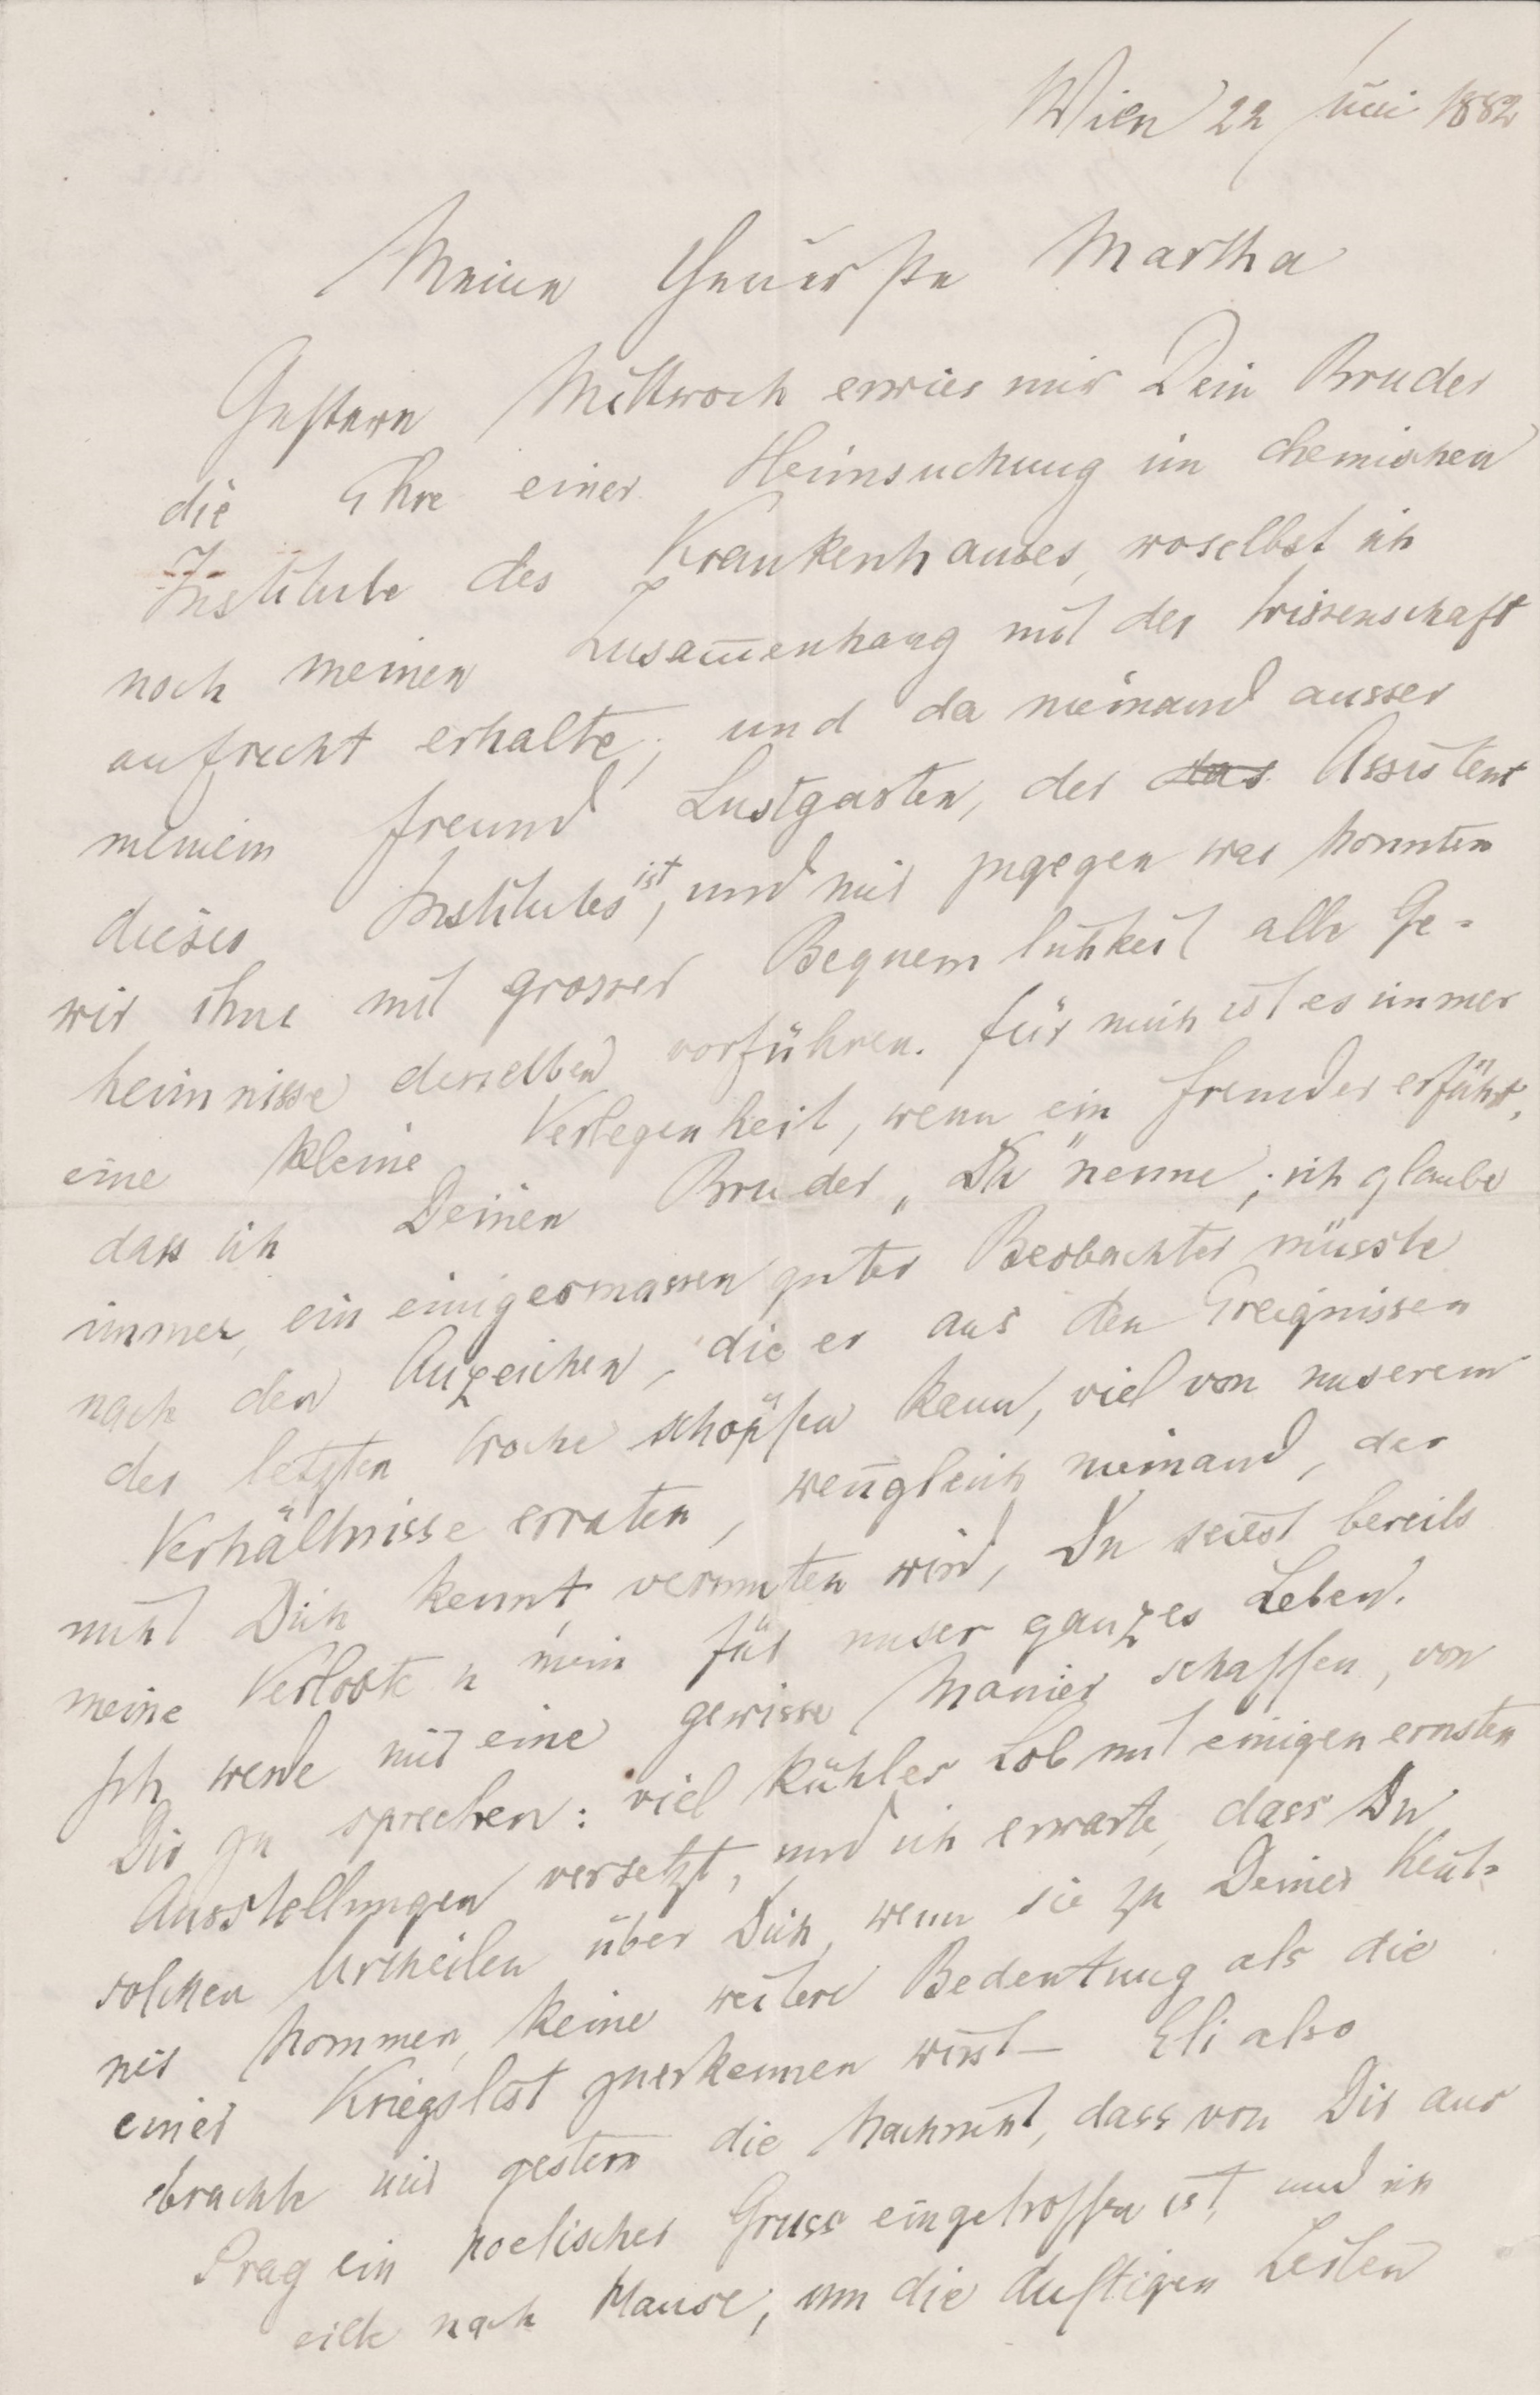 Wien 22 Juni 1882
Meine theuerste Martha
Gestern Mittwoch erwies mir Dein Bruder
die Ehre einer Heimsuchung im chemischen
Institute des Krankenhauses, woselbst ich
noch meinen Zusam̅enhang mit der Wissenschaft
aufrecht erhalte; und da niemand ausser
meinem Freund Lustgarten, der das Assistent
dieses Institutes ist, und mir zugegen war konnten
wir ihm mit grosser Bequemlichkeit alle Ge-
heimnisse desselben vorführen. Für mich ist es immer
eine kleine Verlegenheit, wenn ein Fremder erfährt,
dass ich Deinen Bruder „Du" nenne; ich glaube
immer, ein einigermassen guter Beobachter müsste
nach den Anzeichen, die er aus den Ereignissen
der letzten Woche schöpfen kann, viel von unserem
Verhältnisse erraten, wen̅gleich niemand, der
nicht Dich kennt, vermuten wird, Du seiest bereits
meine Verlobte u mein für unser ganzes Leben.
Ich werde mir eine gewisse Manier schaffen, von
Dir zu sprechen: viel kühles Lob mit einigen ernsten
Ausstellungen versetzt, und ich erwarte, dass Du
solchen Urtheilen über Dich, wenn sie zu Deiner Ken̅t-
nis kommen, keine weitere Bedeutung als die
einer Kriegslist zuerkennen wirst – Eli also
brachte mir gestern die Nachricht, dass von Dir aus
Prag ein poetischer Gruss eingetroffen ist, und ich
eilte nach Hause, um die duftigen Zeilen